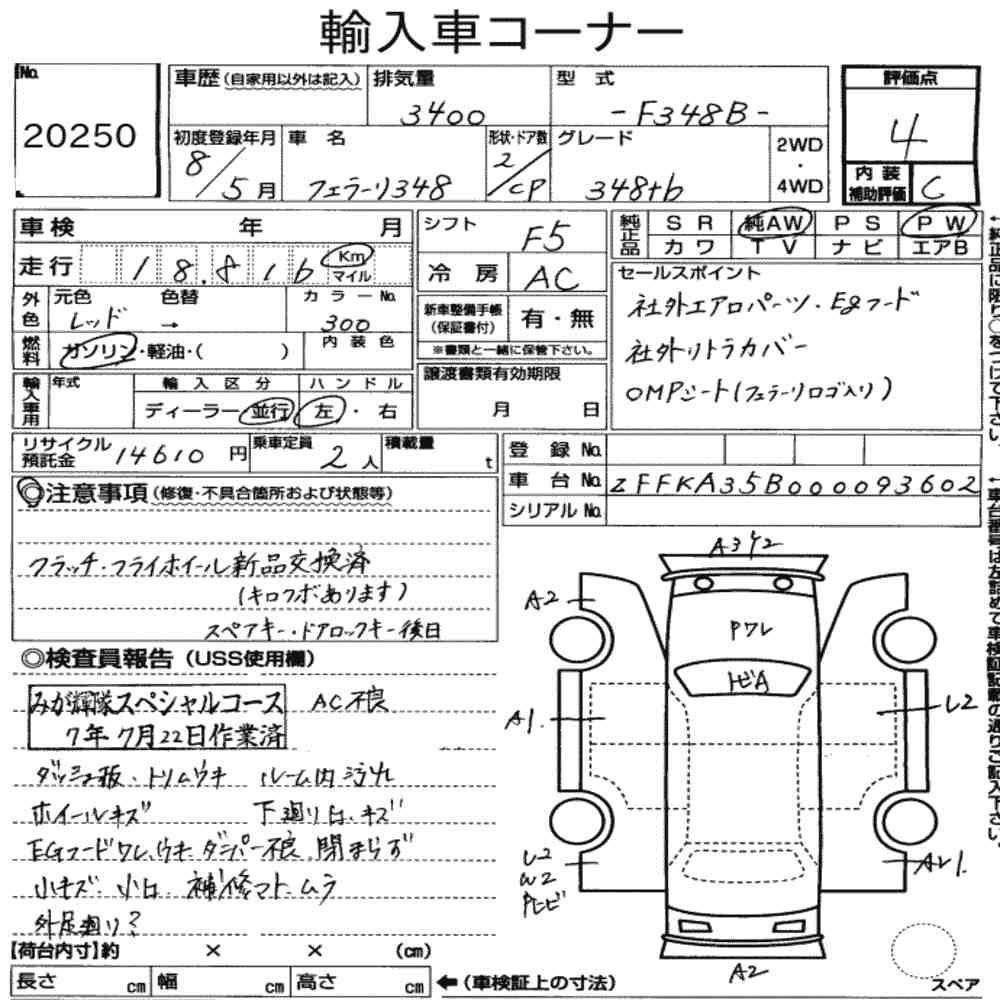 輸入車コーナー
No.
20250
車歴(自家用以外は記入)
排気量
3400
型式
-F348B-
評価点
4
初度登録年月
8/5月
車名
フェラーリ348
形状・ドア数
2/CP
グレード
348tb
2WD
・
4WD
内装
補助評価
C
車検 年 月
走行 18.816 Km
マイル
シフト
F5
純正品
SR 純AW PS PW
カワ TV ナビ エアB
冷房
AC
外色
元色 色替
レッド →
カラーNo.
300
新車整備手帳
(保証書付)
有・無
※書類と一緒に保管下さい。
セールスポイント
社外エアロパーツ・Egフード
社外リトラカバー
OMPシート(フェラーリロゴ入り)
燃料
ガソリン・軽油・( )
内装色
輸入車用
年式
輸入区分
ディーラー・並行
ハンドル
左・右
譲渡書類有効期限
月 日
リサイクル
預託金
14610円
乗車定員
2人
積載量
t
登録No.
車台No. ZFFKA35B000093602
シリアルNo.
◎注意事項(修復・不具合箇所および状態等)
クラッチ・フライホイール新品交換済
(キロクボあります)
スペアキー・ドアロックキー後日
◎検査員報告(USS使用欄)
みが輝隊スペシャルコース
7年7月22日作業済
AC不良
ダッシュ板・トリムウキ ルーム内汚れ
ホイールキズ 下廻り凹、キズ
EGフードワレ、ウキ ダンパー不良 閉まらず
小キズ 小凹 補修マト、ムラ
外足廻り?
A3Y2
A2
Pワレ
トビA
A1
U2
U2
W2
A2
スペア
【荷台内寸】約 × × (cm)
長さ cm 幅 cm 高さ cm ←(車検証上の寸法)
↑純正品に限り○をつけて下さい。
↑車台番号は左詰めで車検証記載の通りご記入下さい。